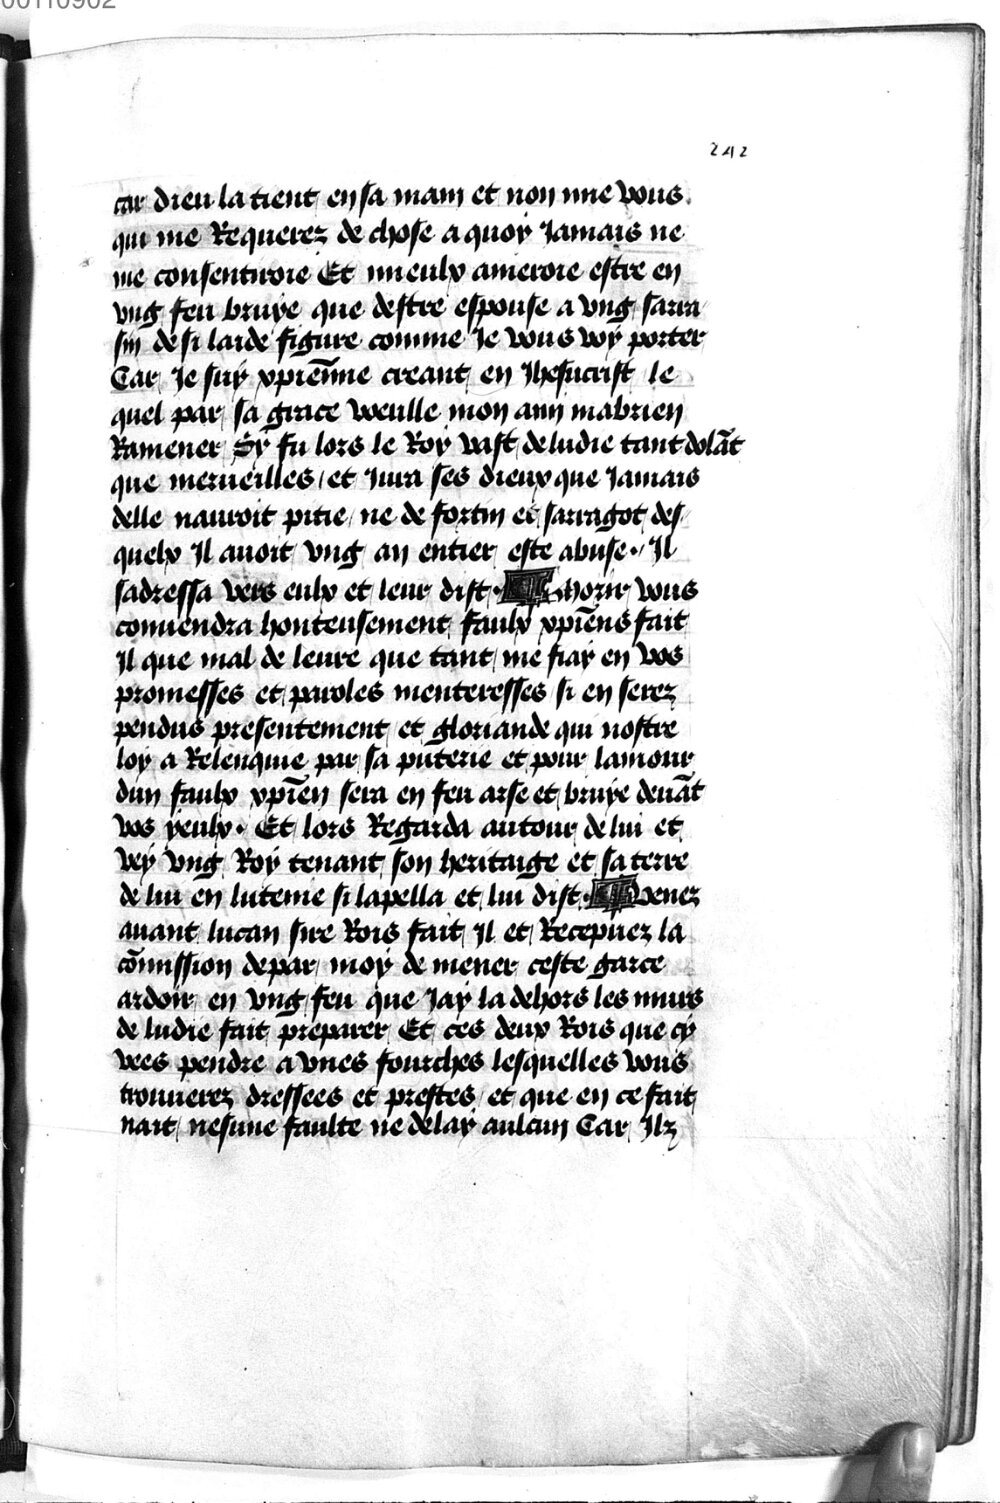 00110902
242
car dieu la tient en sa main et non mie vous
qui me Requerez de chose a quoy Jamais ne
me consentiroie Et mieulx ameroie estre en
vng feu bruÿe que destre espouse a vng sarra
sin de si laide figure comme Je vous voÿ porter
Car Je suÿ xpiēnne creant en Jhesucrist le
quel par sa grace vueille mon amÿ mabrien
Ramener Sÿ fu lors le Roÿ vast de ludie tant dolāt
que merueilles / et Jura ses dieux que Jamais
delle nauroit pitie / ne de fortin et sarragot des
quelx Il auoit vng an entier este abuse · Il
sadressa vers eulx et leur dist · Morir vous
conuendra honteusement faulx xpīens fait
Il que mal de leure que tant me fiaÿ en vos
promesses et paroles menteresses si en serez
pendus presentement et gloriande qui nostre
loÿ a Relenquie par sa puterie et pour lamour
dun faulx xpīen sera en feu arse et bruÿe deuāt
vos ÿeulx · Et lors Regarda autour de lui et
veÿ vng Roÿ tenant son heritaige et sa terre
de lui en lutenie si lapella et lui dist · Venez
auant lucan sire Rois fait Il et Recepuez la
cōmission de par moÿ de mener ceste garce
ardoir en vng feu que Jaÿ la dehors les murs
de ludie fait preparer Et ces deux Rois que cÿ
vees pendre a vnes fourches lesquelles vous
trouuerez dressees et prestes / et que en ce fait
nait nesune faulte ne delaÿ aulcun Car Ilz